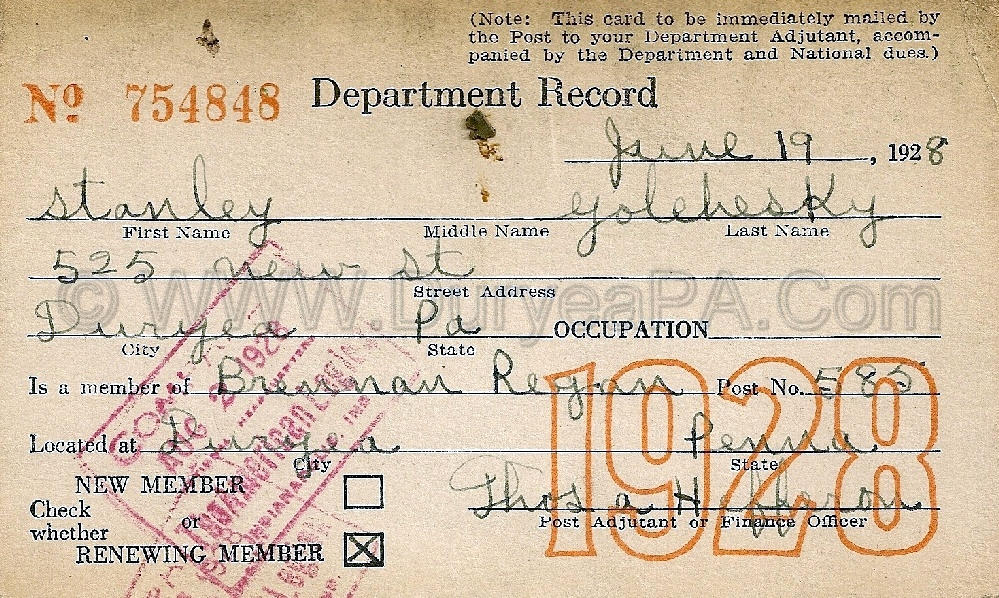 (Note: This card to be immediately mailed by
the Post to your Department Adjutant, accom-
panied by the Department and National dues.)
No 754848 Department Record
June 19, 1928
Stanley Golchesky
First Name Middle Name Last Name
525 New St
Street Address
© WWW.DuryeaPA.Com
Duryea Pa OCCUPATION
City State
Is a member of Brennan Regan Post No. 585
1928
Located at Duryea Penna
City State
NEW MEMBER
Check
whether or
Thos a Heffron
Post Adjutant or Finance Officer
RENEWING MEMBER